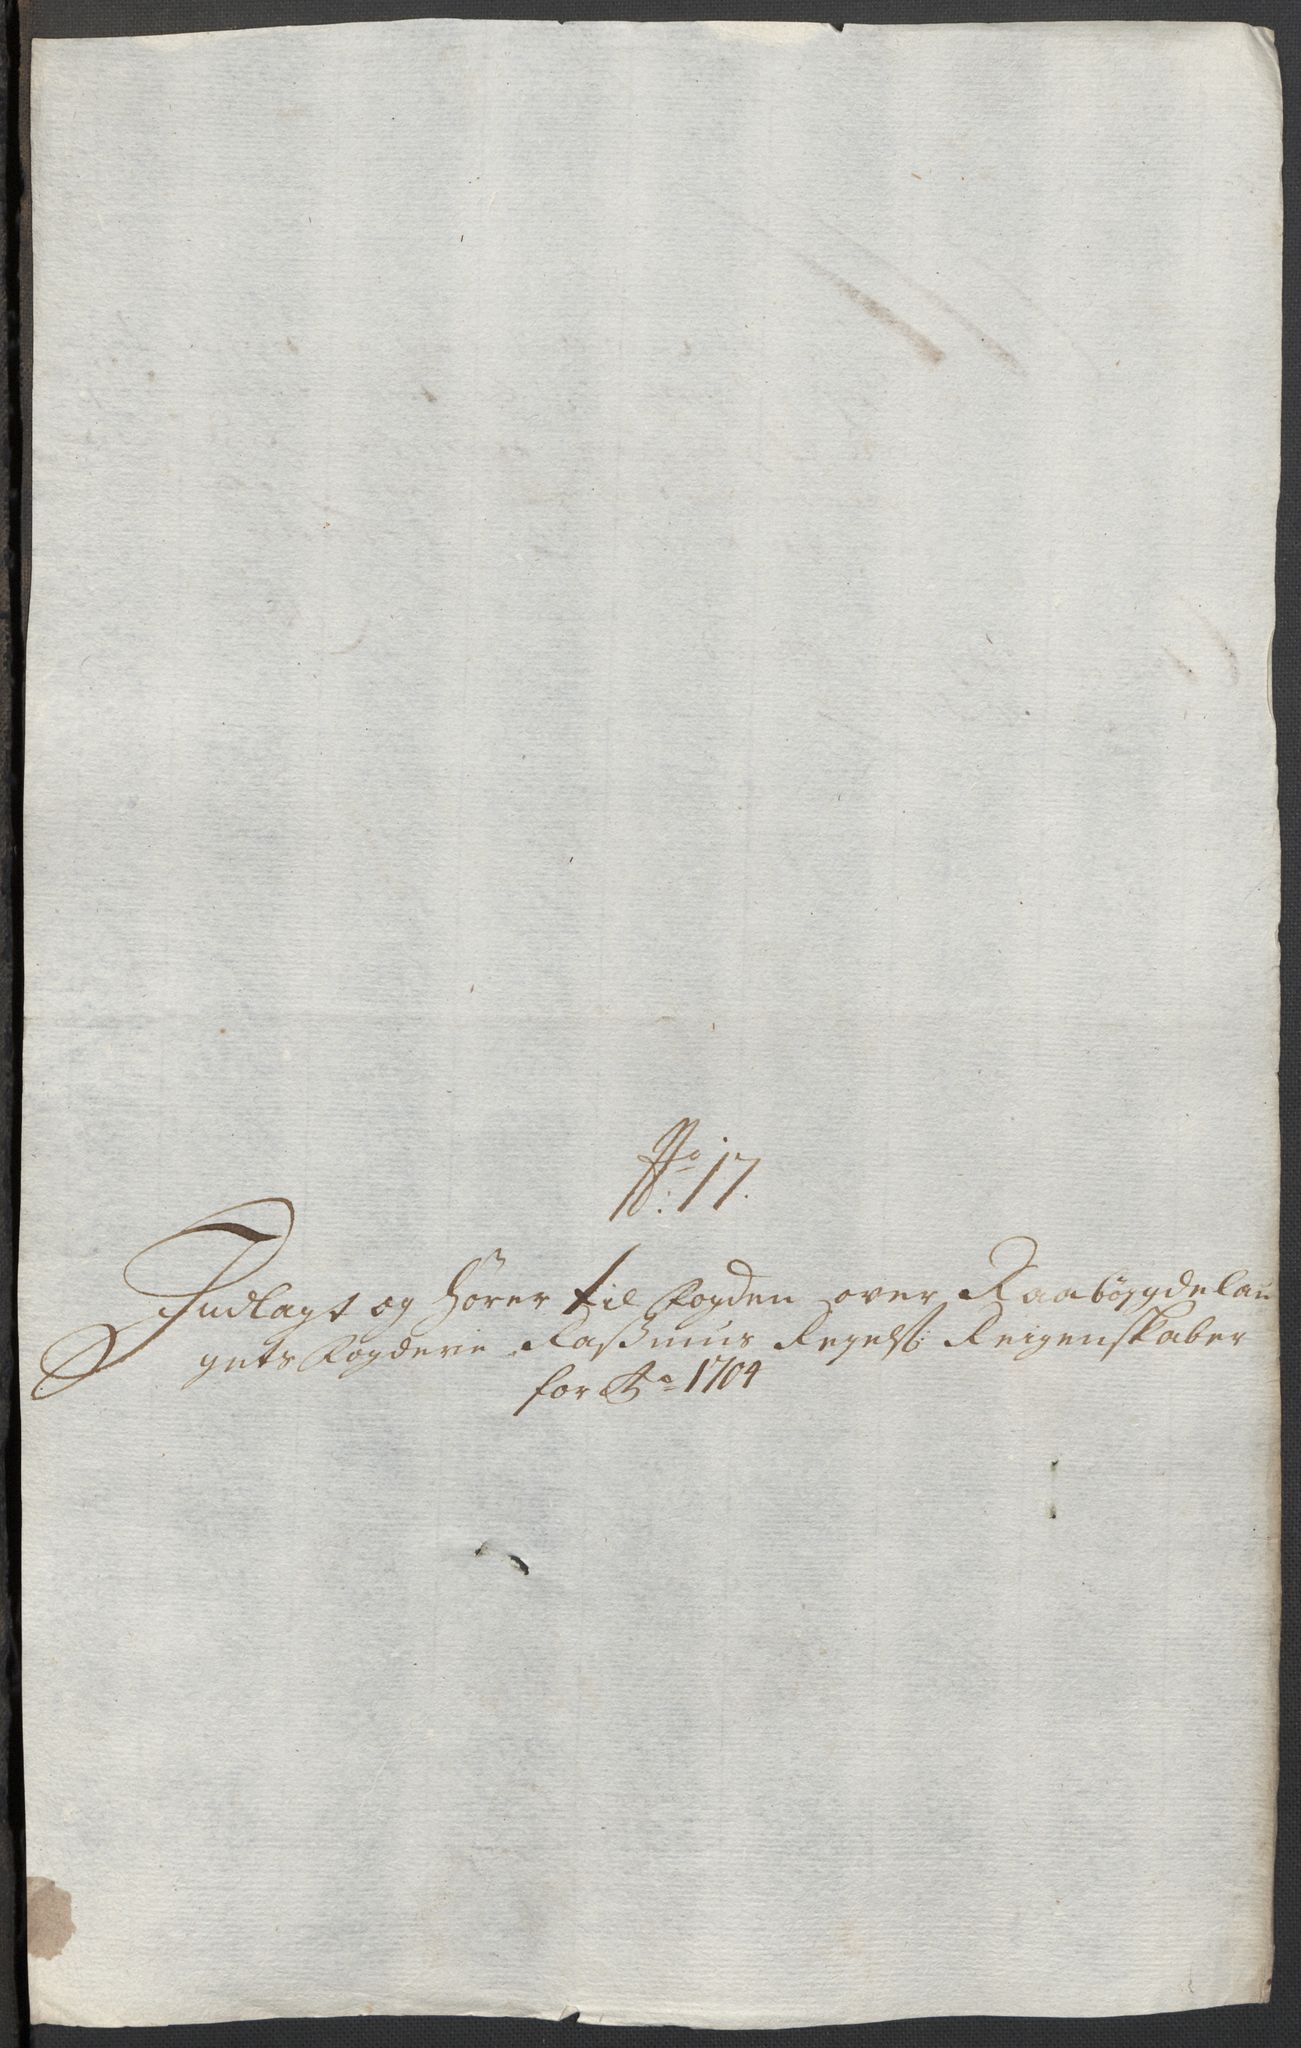 No: 17.
Indlagt og hører til fogden over Raabøygdelau
gets fogderie Rasmus Regelst: Reigenskaber
for Ao 1704